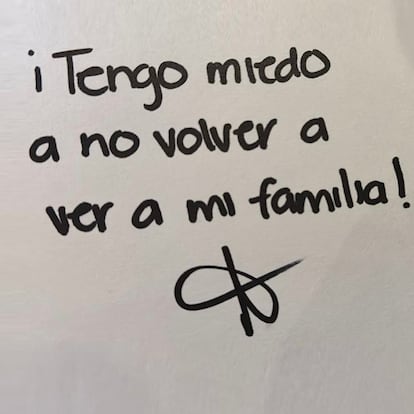 ¡Tengo miedo
a no volver a
ver a mi familia!